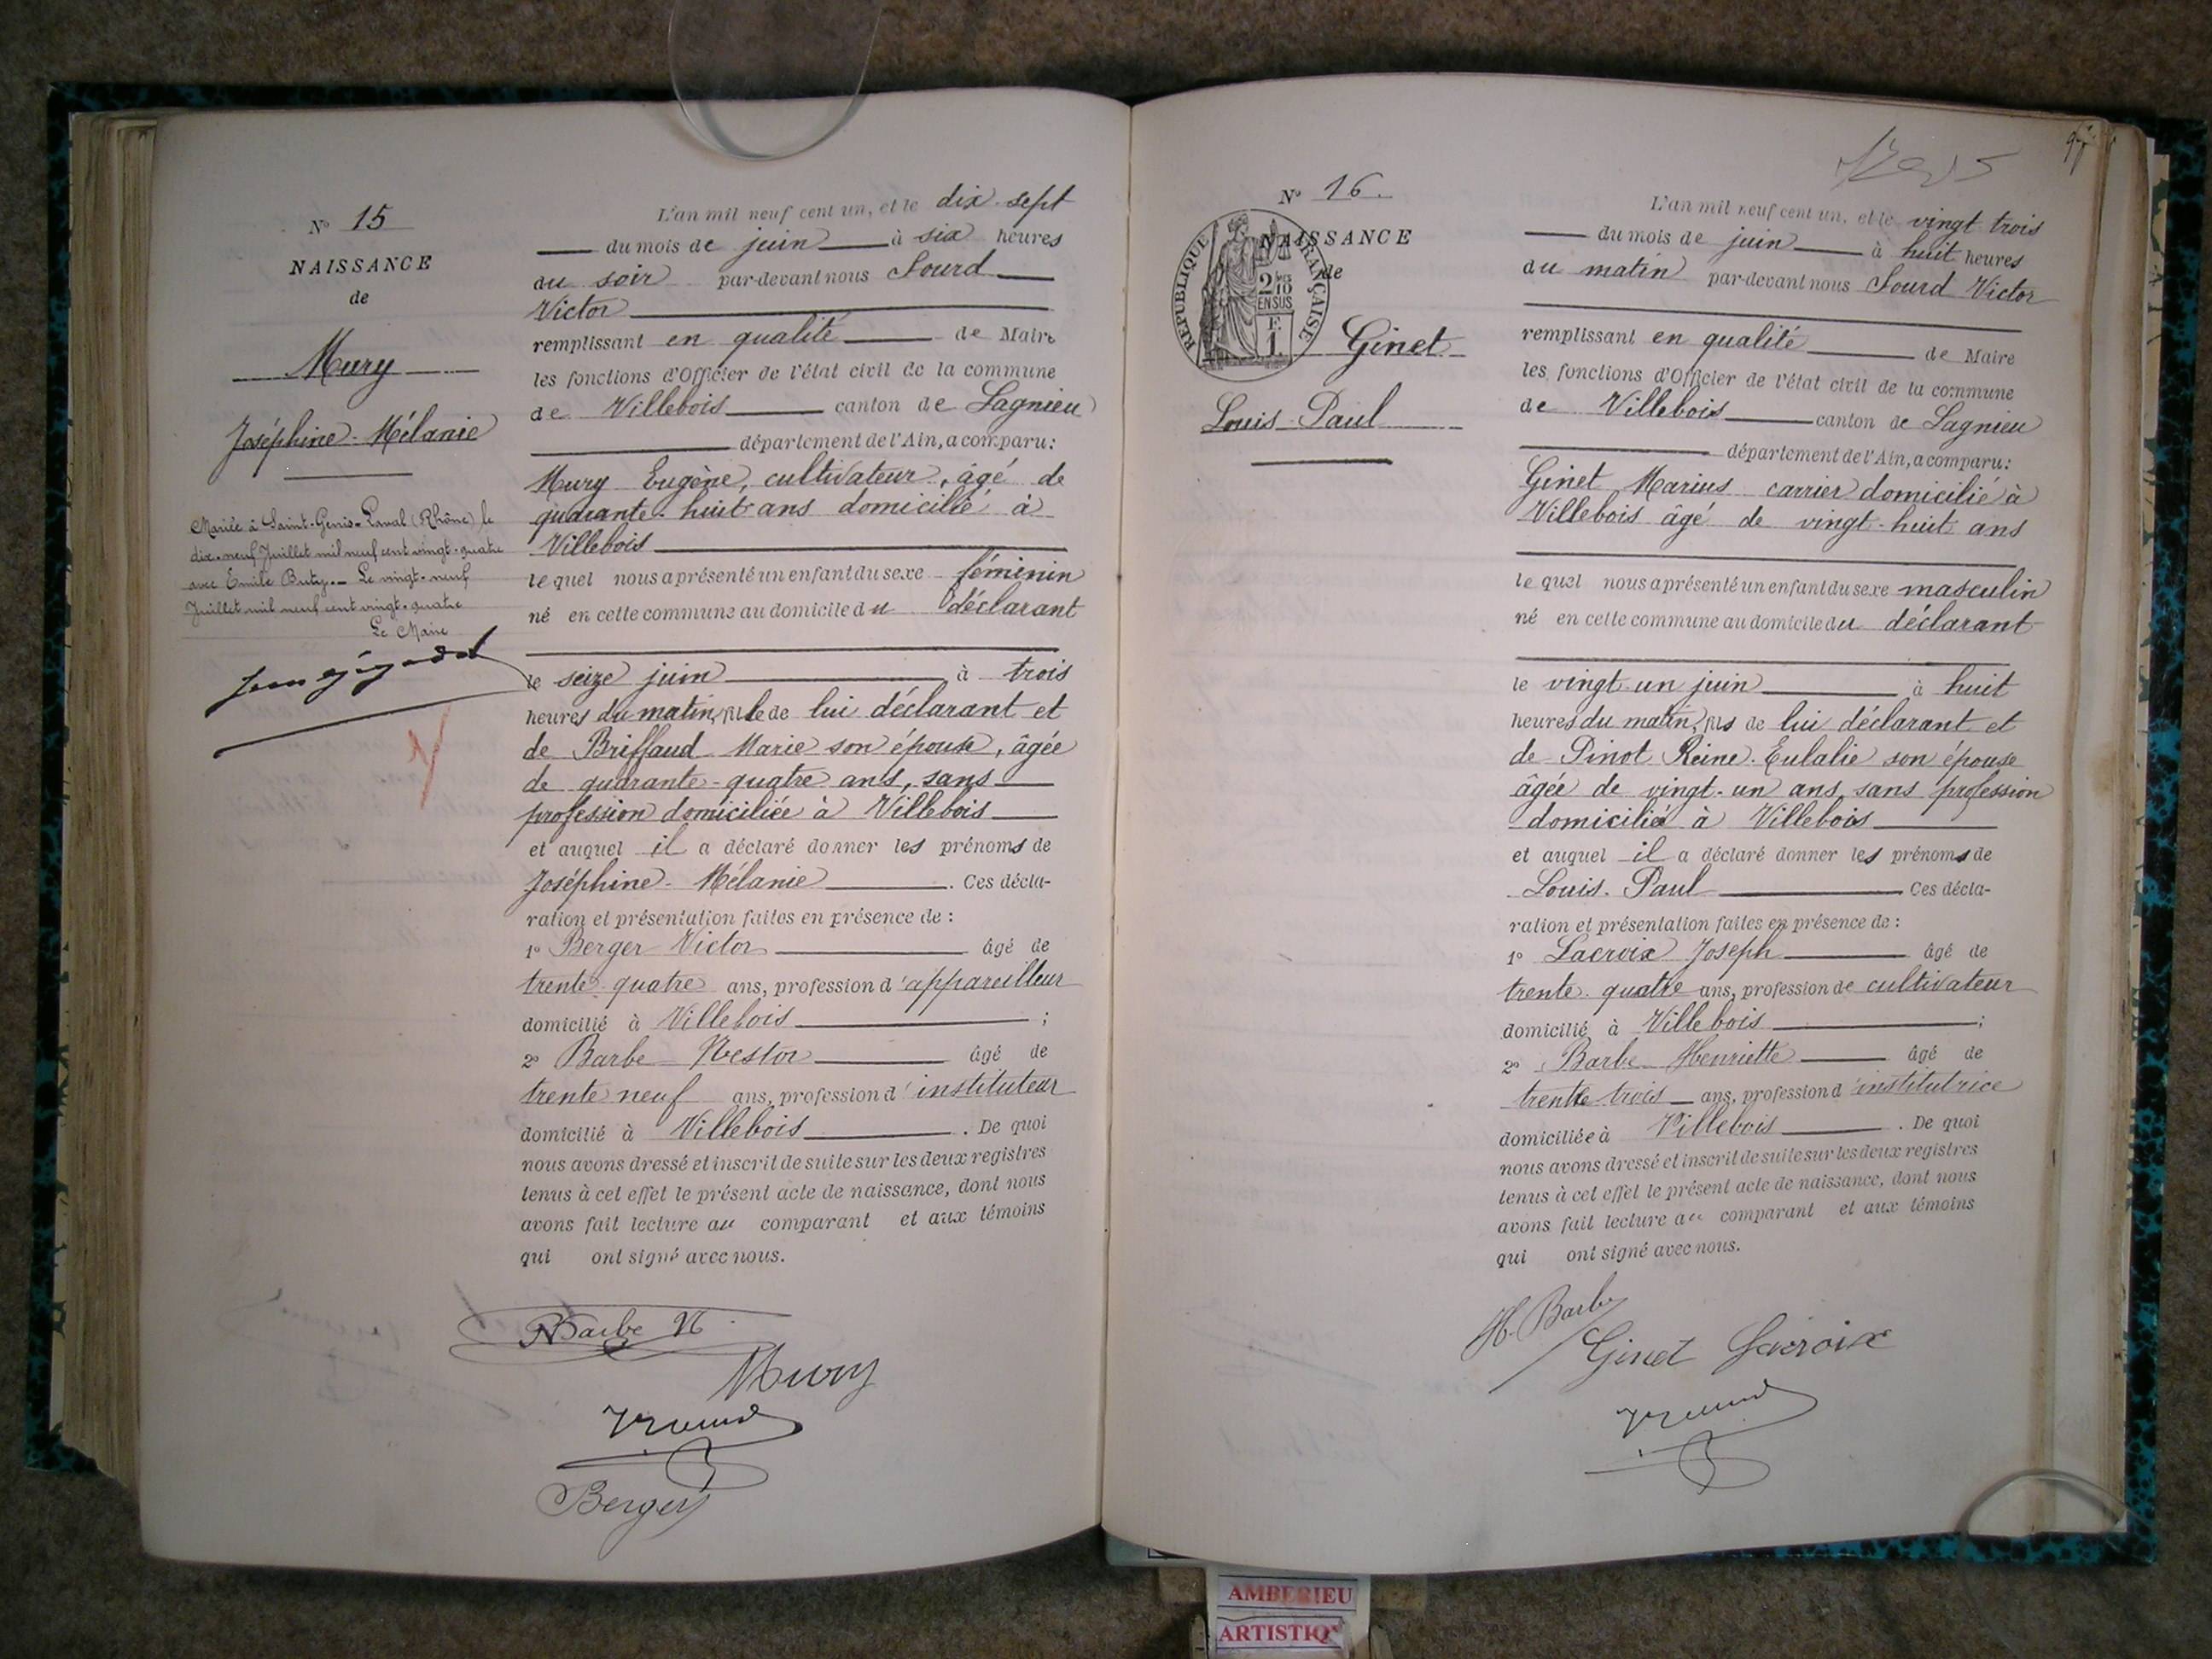 N° 15
NAISSANCE
de
Mury
Joséphine-Mélanie
Mariée à Saint-Genis-Laval (Rhône) le
dix-neuf Juillet mil neuf cent vingt-quatre
avec Emile Buty.- Le vingt-neuf
Juillet mil neuf cent vingt-quatre
Le Maire
L'an mil neuf cent un, et le dix-sept
du mois de juin à six heures
du soir par-devant nous Sourd
Victor
remplissant en qualité de Maire
les fonctions d'Officier de l'état civil de la commune
de Villebois canton de Lagnieu
département de l'Ain, a comparu:
Mury Eugène, cultivateur, âgé de
quarante-huit ans domicilié à
Villebois
le quel nous a présenté un enfant du sexe féminin
né en cette commune au domicile du déclarant
le seize juin à trois
heures du matin, fille de lui déclarant et
de Briffaud Marie son épouse, âgée
de quarante-quatre ans, sans
profession domiciliée à Villebois
et auquel il a déclaré donner les prénoms de
Joséphine-Mélanie. Ces décla-
ration et présentation faites en présence de :
1° Berger Victor âgé de
trente-quatre ans, profession d'appareilleur
domicilié à Villebois ;
2° Barbe Nestor âgé de
trente neuf ans, profession d'instituteur
domicilié à Villebois. De quoi
nous avons dressé et inscrit de suite sur les deux registres
tenus à cet effet le présent acte de naissance, dont nous
avons fait lecture au comparant et aux témoins
qui ont signé avec nous.
Barbe N
Mury
Berger
97
N° 16.
NAISSANCE
de
REPUBLIQUE FRANÇAISE
2/10
EN SUS
F.
1.
Ginet
Louis-Paul
L'an mil neuf cent un, et le vingt trois
du mois de juin à huit heures
du matin par-devant nous Sourd Victor
remplissant en qualité de Maire
les fonctions d'Officier de l'état civil de la commune
de Villebois canton de Lagnieu
département de l'Ain, a comparu:
Ginet Marius carrier domicilié à
Villebois âgé de vingt-huit ans
le quel nous a présenté un enfant du sexe masculin
né en cette commune au domicile du déclarant
le vingt-un juin à huit
heures du matin, fils de lui déclarant et
de Pinot Reine-Eulalie son épouse
âgée de vingt-un ans sans profession
domiciliée à Villebois
et auquel il a déclaré donner les prénoms de
Louis-Paul Ces décla-
ration et présentation faites en présence de :
1° Lacroix Joseph âgé de
trente-quatre ans, profession de cultivateur
domicilié à Villebois ;
2° Barbe Henriette âgé de
trente trois ans, profession d'institutrice
domiciliée à Villebois. De quoi
nous avons dressé et inscrit de suite sur les deux registres
tenus à cet effet le présent acte de naissance, dont nous
avons fait lecture au comparant et aux témoins
qui ont signé avec nous.
H. Barbe
Ginet Lacroix
AMBERIEU
ARTISTIQ